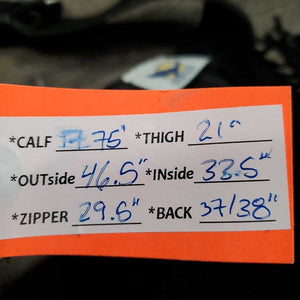 *CALF 17.75" *THIGH 21"
*OUTside 46.5" *INside 33.5"
*ZIPPER 29.5" *BACK 37/38"